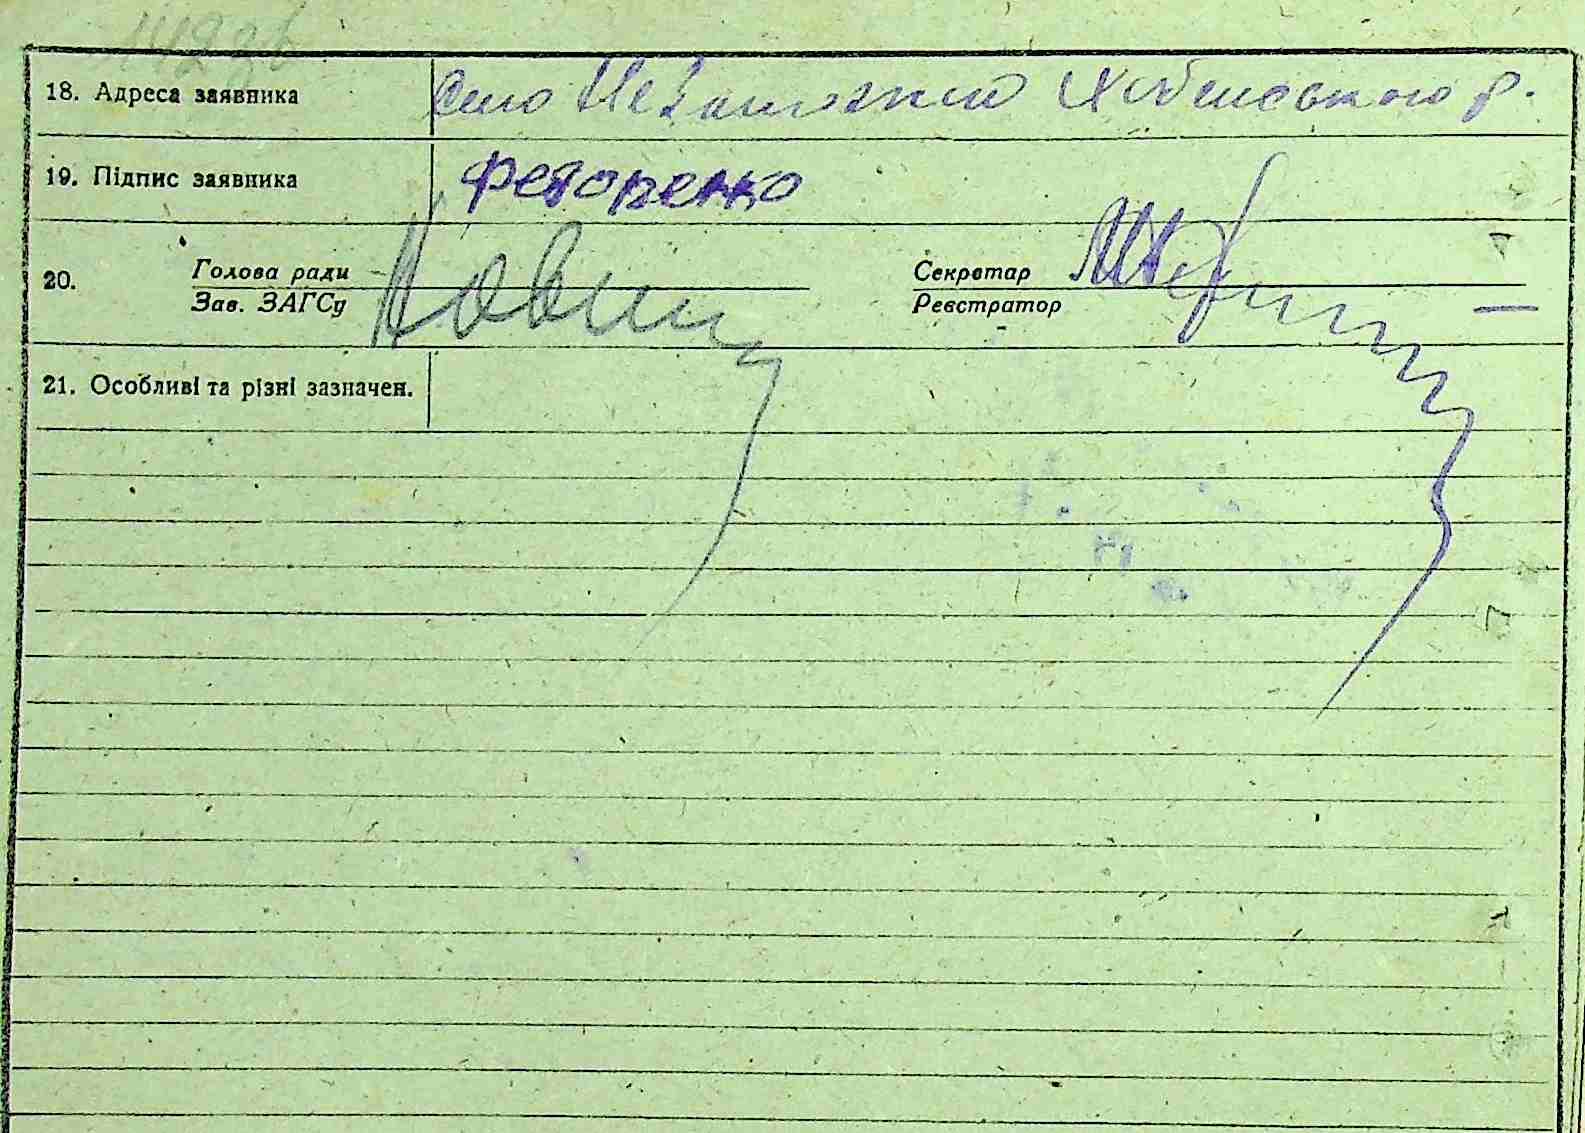 142 зв
18. Адреса заявника село Незаможне Хабенського р.
19. Підпис заявника Федоренко
20. Голова ради Секретар
Зав. ЗАГСу Реєстратор
21. Особливі та різні зазначен.